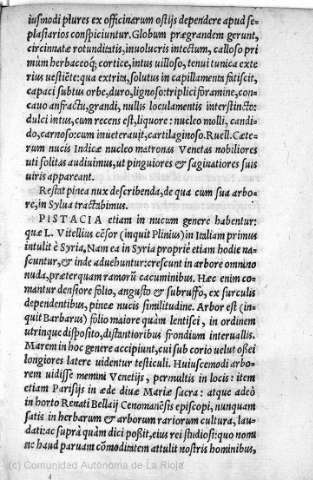 iusmodi plures ex officinarum ostijs dependere apud se-
plasiarios conspiciuntur. Globum prægrandem gerunt,
circinnatæ rotunditatis, inuolucris intectum, calloso pri
mùm herbaceoq́; cortice, intus uilloso, tenui tunica exte
rius uestiēte: qua extrita, solutus in capillamenta fatiscit,
capaci subtus orbe, duro, lignoso: triplici foramine, con-
cauo anfractu, grandi, nullis loculamentis interstincto:
dulci intus, cum recens est, liquore: nucleo molli, candi-
do, carnoso: cum inueterauit, cartilaginoso. Ruell. Cæte-
rum nucis Indicæ nucleo matronas Venetas nobiliores
uti solitas audiuimus, ut pinguiores & saginatiores suis
uiris appareant.
Restat pinea nux describenda, de qua cum sua arbo-
re, in Sylua tractabimus.
PISTACIA etiam in nucum genere habentur:
quæ L. Vitellius cēsor (inquit Plinius) in Italiam primus
intulit è Syria, Nam ea in Syria propriè etiam hodie na-
scuntur, & inde aduehuntur: crescunt in arbore omnino
nuda, præterquam ramorū cacuminibus. Hæc enim co-
mantur densiore folio, angusto & subruffo, ex surculis
dependentibus, pineæ nucis similitudine. Arbor est (in-
quit Barbarus) folio maiore quàm lentisci, in ordinem
utrinque disposito, distantioribus frondium interuallis.
Marem in hoc genere accipiunt, cui sub corio uelut ossei
longiores latere uidentur testiculi. Huiuscemodi arbo-
rem uidisse memni Venetijs, permultis in locis: item
etiam Parisijs in æde diuæ Mariæ sacra: atque adeò
in horto Renati Bellaij Cenomanēsis episcopi, nunquam
satis in herbarum & arborum rariorum cultura, lau-
dati: ac suprà quàm dici possit, eius rei studiosi: quo nomi
ne haud paruam cōmoditatem attulit nostris hominibus,
(c) Comunidad Autónoma de La Rioja